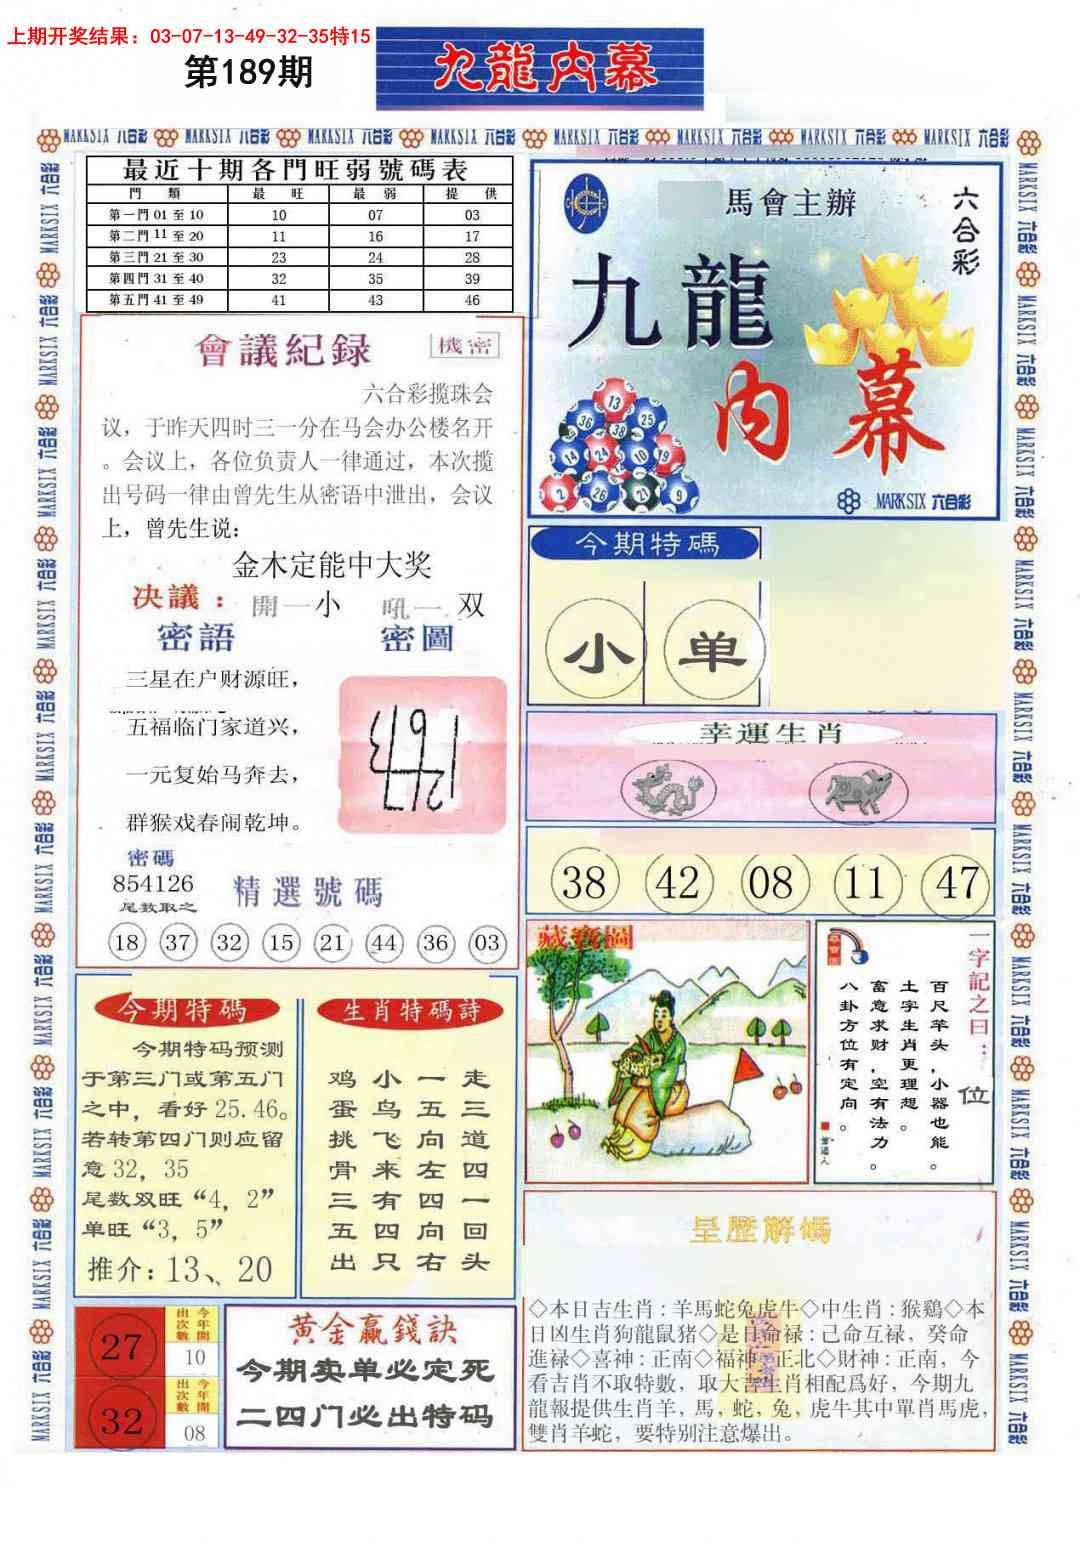 上期开奖结果：03-07-13-49-32-35特15
第189期
九龍内幕
MARKSIX 六合彩
最近十期各門旺弱號碼表
門類 最旺 最弱 提供
第一門 01 至 10 10 07 03
第二門 11 至 20 11 16 17
第三門 21 至 30 23 24 28
第四門 31 至 40 32 35 39
第五門 41 至 49 41 43 46
會議紀録
機密
六合彩揽珠会
议，于昨天四时三一分在马会办公楼名开
。会议上，各位负责人一律通过，本次揽
出号码一律由曾先生从密语中泄出，会议
上，曾先生说：
金木定能中大奖
决議：開一小 吼一双
密語
密圖
三星在户财源旺，
五福临门家道兴，
一元复始马奔去，
群猴戏春闹乾坤。
密碼
854126
尾数取之
精選號碼
18 37 32 15 21 44 36 03
馬會主辦
六合彩
九龍
内幕
13
36 38 25
14 24 10 19
2 26 21 9
MARKSIX 六合彩
今期特碼
小 单
幸運生肖
38 42 08 11 47
藏寶圖
一字記之曰：
位
百尺竿头，小器也能。
土字生肖更理想。
畜意求财，空有法力。
八卦方位有定向。
今期特码
今期特码预测
于第三门或第五门
之中，看好 25.46。
若转第四门则应留
意 32，35
尾数双旺“4，2”
单旺“3，5”
推介：13、20
生肖特碼詩
鸡小一走
蛋鸟五三
挑飞向道
骨来左四
三有四一
五四向回
出只右头
27
今年開出次數
10
32
今年開出次數
08
黄金赢錢訣
今期卖单必定死
二四门必出特码
呈歷解碼
◇本日吉生肖：羊馬蛇兔虎牛◇中生肖：猴鷄◇本
日凶生肖狗龍鼠猪◇是日命禄：己命互禄，癸命
進禄◇喜神：正南◇福神：正北◇財神：正南，今
看吉肖不取特數，取大吉生肖相配爲好，今期九
龍報提供生肖羊，馬，蛇，兔，虎牛其中單肖馬虎，
雙肖羊蛇，要特别注意爆出。